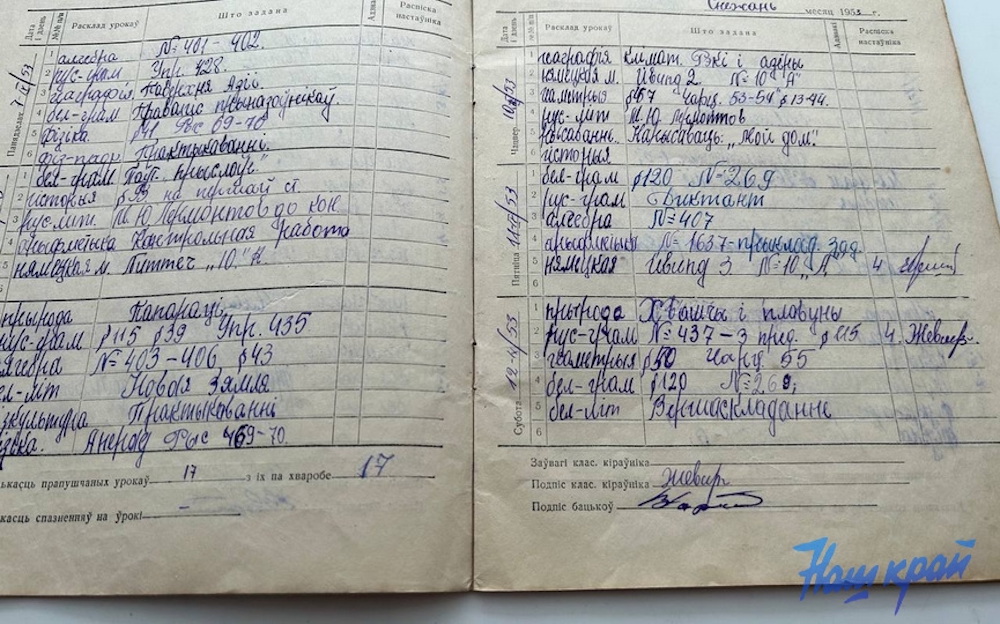 Дата і дзень
№№ п/п
Расклад урокаў
Што задана
Адзнакі
Распіска настаўніка
Панядзелак 7
53
1 алгебра № 401 - 402.
2 рус-грам Упр. 428.
3 геаграфія. Паверхня Азіі.
4 бел-грам Правапіс прыназоўнікаў.
5 фізіка. §41 Рыс 69-70
6 фіз-падр. Практыкаванні.
1 бел-грам Паўт. прыслоўе"
2 гісторыя § 33 на першай ст.
3 рус-літ. М Ю Лермонтов до кон
4 арыфметыка Кантрольная работа
5 нямецкая м. Питтеч „10." К.
6
прырода Папараці
рус-грам §115 §39 Упр. 435
алгебра № 403-406, §43
бел-літ Новая зямля
фізкультура Практыкованні
фізіка. Анероід Рыс 469-70.
колькасць прапушчаных урокаў 17 з іх па хваробе 17
колькасць спазненняў на ўрокі –
Снежань месяц 1953 г.
Дата і дзень
№№ п/п
Расклад урокаў
Што задана
Адзнакі
Распіска настаўніка
Чацвер. 10
53
1 геаграфія Клімат. Рэкі і азёры
2 нямецкая м. № 10 "А"
3 геаметрыя §67 Чарц. 53-54 § 13-44.
4 рус-літ М.Ю Лермонтов
5 Напісаваць: „Мой дом."
6 історыя
Пятніца 11
53
1 бел-грам §120 № 269
2 рус-грам Диктант
3 алгебра № 407
4 арыфметыка № 1637-прыклад. зад.
5 нямецкая 3 № 10 „А" 4
6
Субота 12
53
1 прырода Хвашчы і плавуны
2 рус-грам № 437-3 пред. § 115 4 Жевнер.
3 геометрыя §50 Чарц 55
4 бел-грам §120 № 269;
5 бел-літ Вершаскладанне
6
Заўвагі клас. кіраўніка
Подпіс клас. кіраўніка
Подпіс бацькоў
Наш край